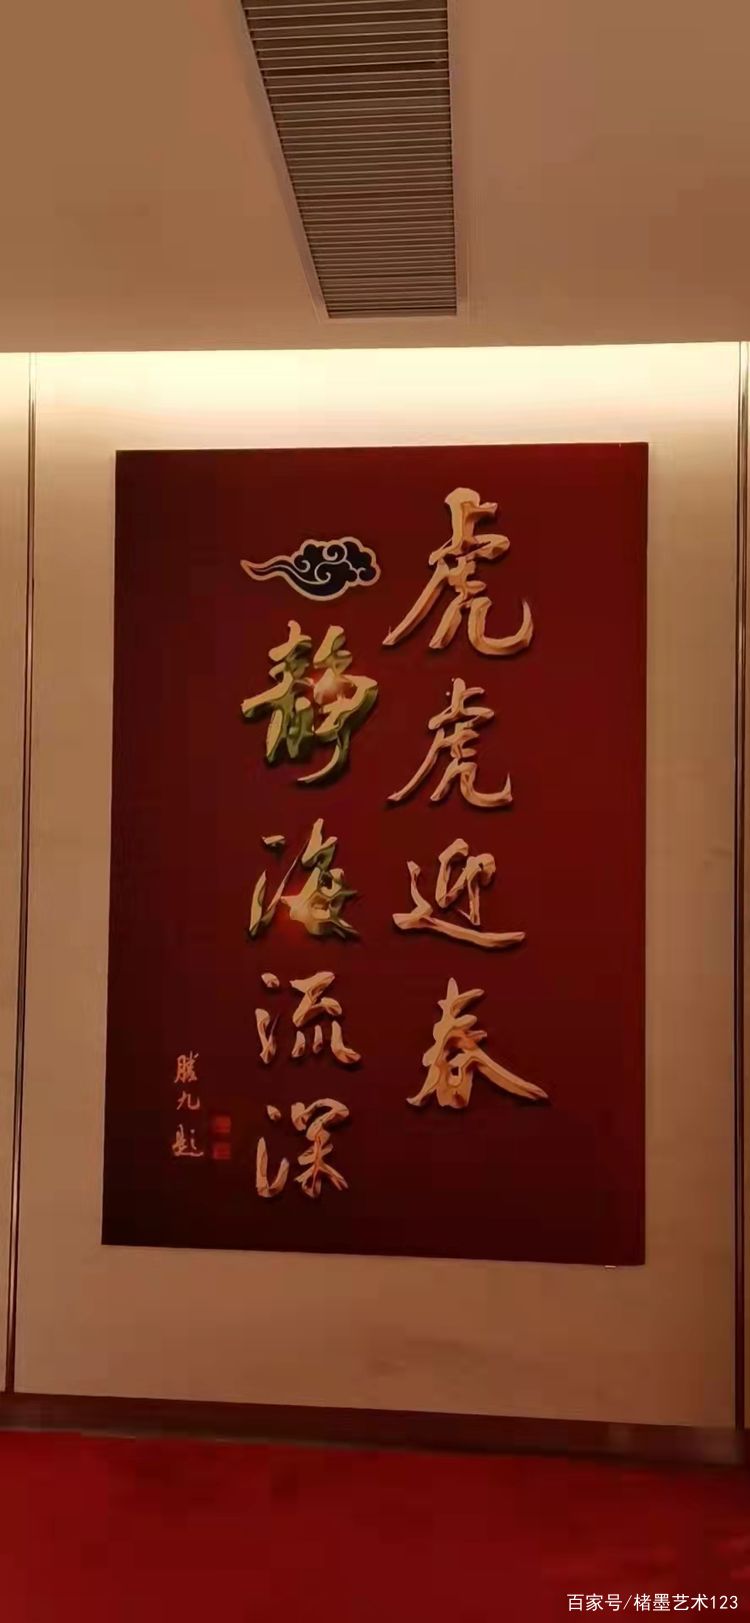 虎虎迎春
静海流深
腾九题
百家号/楮墨艺术123